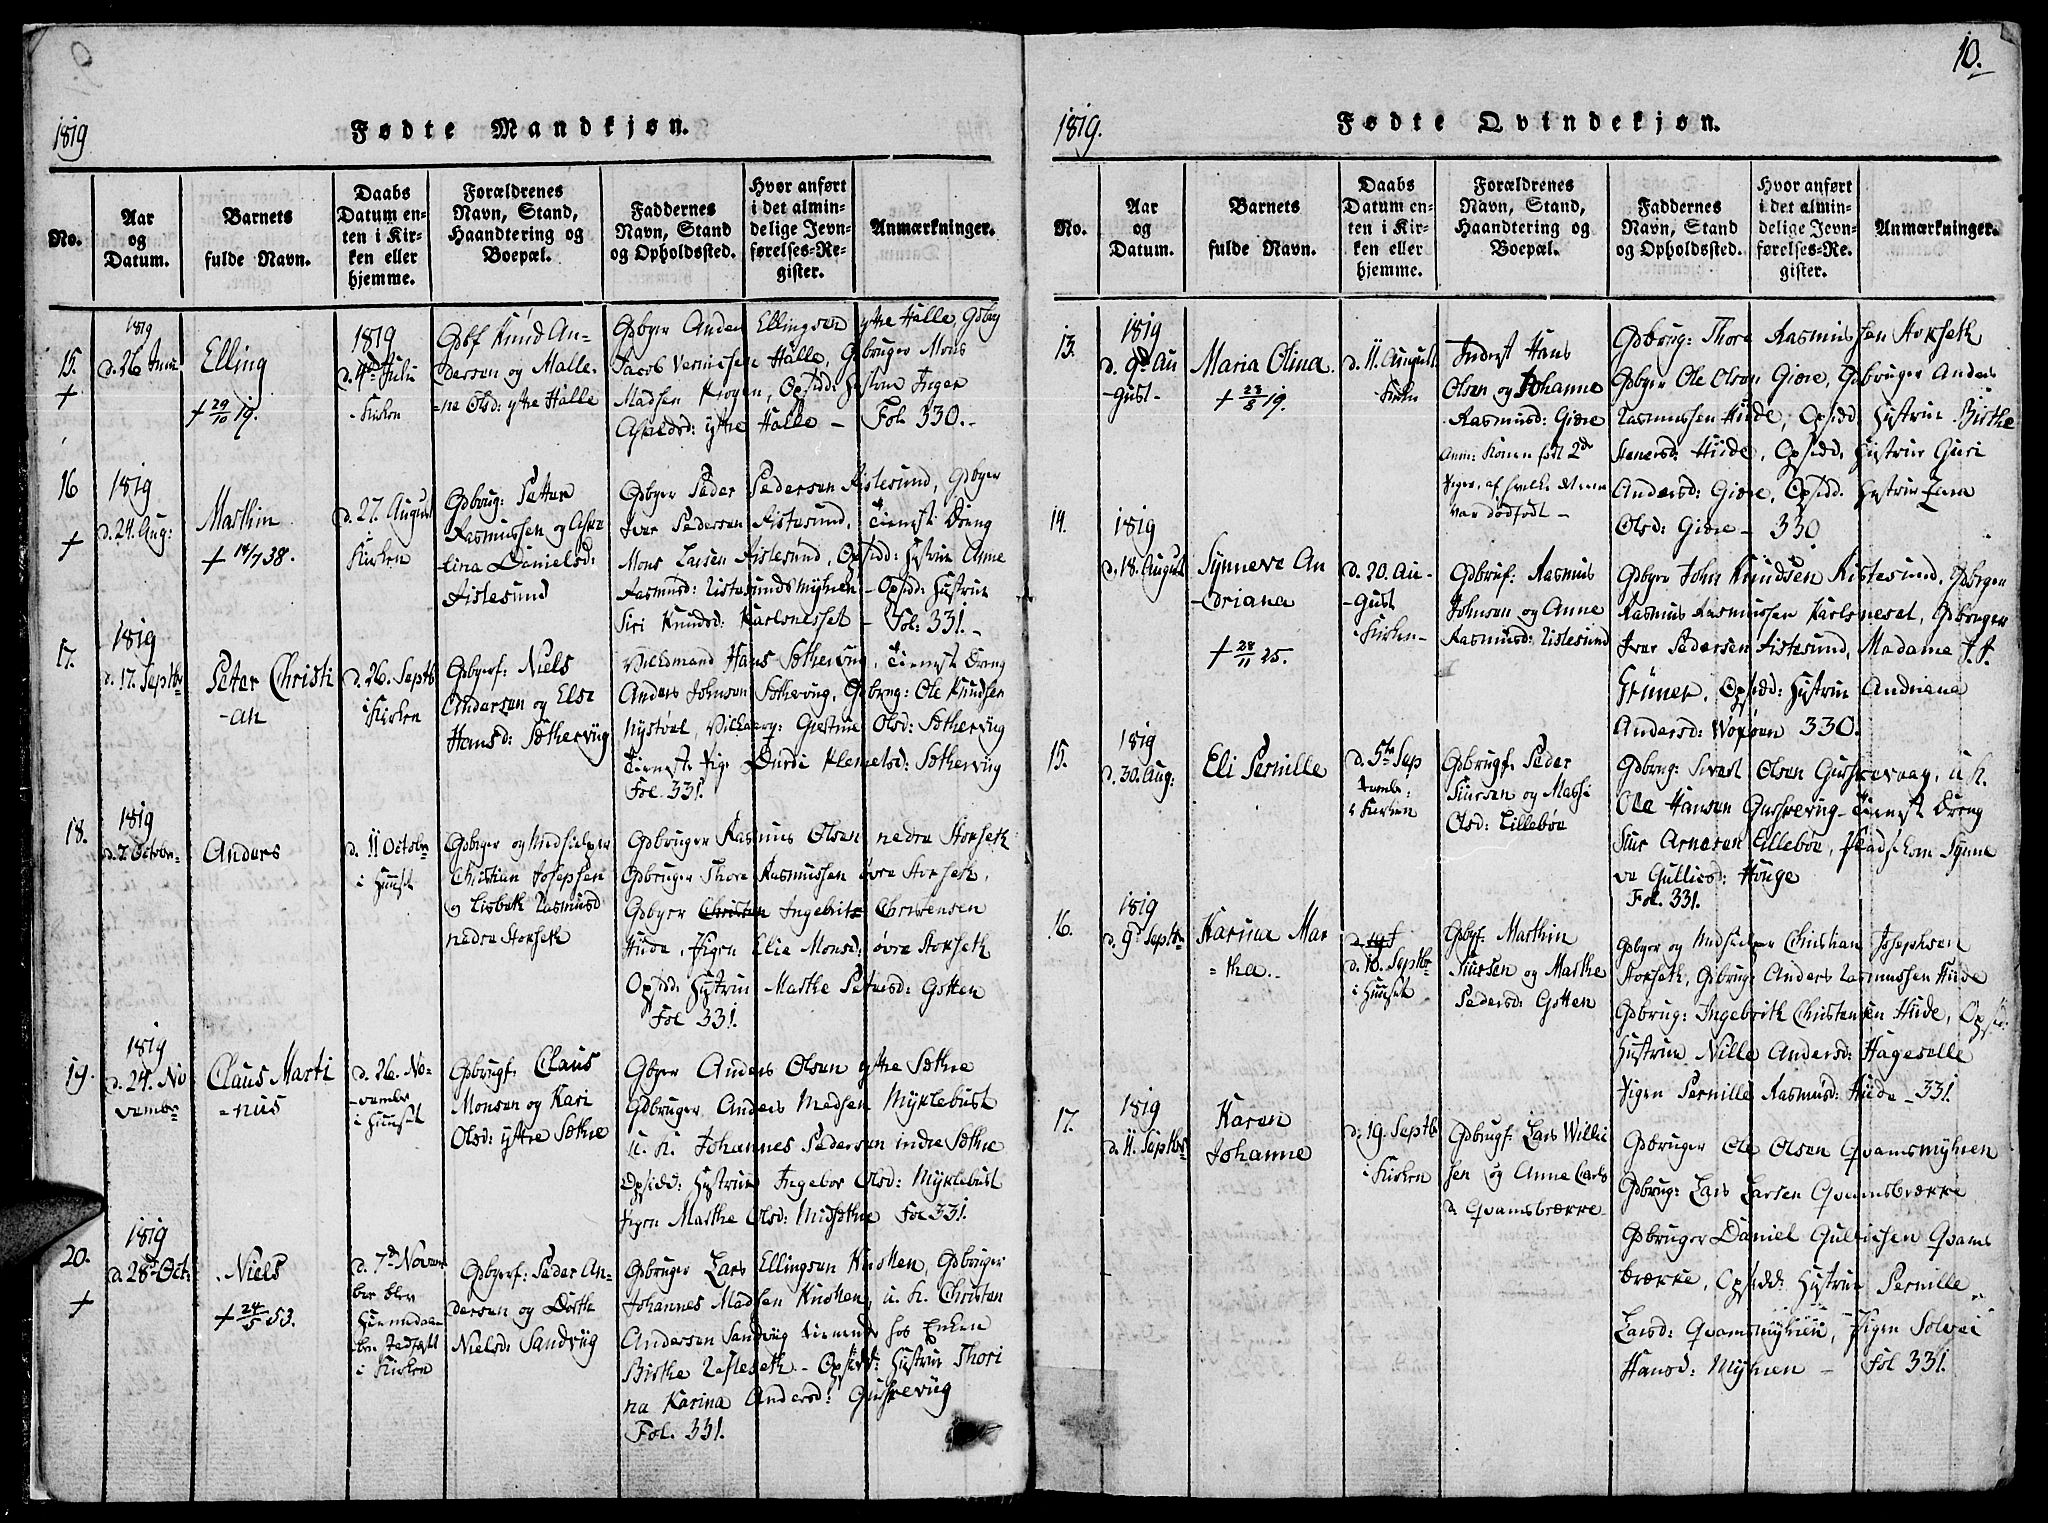 1819
Fødte Mandkjøn.
No.
Aar
og
Datum.
Barnets
fulde Navn.
Daabs
Datum en-
ten i Kir-
ken eller
hjemme.
Forældrenes
Navn, Stand,
Haandtering og
Boepæl.
Faddernes
Navn, Stand
og Opholdssted.
Hvor anført
i det almin-
delige Jevn-
førelses-Re-
gister.
Anmærkninger.
15.
+
1819
d. 26 Juni
Elling
+ 29/10 19.
1819
d. 4d Juli
i Kirken
Gdbf Knud An-
dersen og Malle-
ne Olsd: ytre Halle
Gdbger Anders Ellingsen ytre Halle, Gdbrg
Jacob Halle, Gdbruger Mons
Madsen Krogen, Opsidd: Hystrue Inger
ytre Halle – Fol. 330. –
16
+
1819
d. 24. Aug:
Marthin
+ 14/7 38.
d. 27. August
i
Kirken
Gdbrug: Petter
Rasmussen og
lina Danielsd:
Ristesund
Gdbger Peder Pedersen Ristesund, Gdbger
Iver Pedersen Ristesund, Tienst: Dreng
Mons Larsen Ristesund, Opsidd: Hystrue Anne
Rasmusd: Ristesundsmyhren – Opsidd: Hustrue
Siri Knudsd: Karlsnesset – Fol: 331. –
17.
1819
d. 17. Septbr
Peter Christi
-an
d. 26. Septb
i Kirken
Gdbgerf: Niels
Andersen og Else
Hansd: Søthervug
Hans Søthervug, Tienst Dreng
Anders Johnsen Søthervug, Gdbrug: Ole Knudsen
Nystøel, Giertrue Olsd: Søthervug
Tienst: Pige Durdi Klemetsd: Søthervug
Fol. 331.
18.
1819
d. 7. Octobr
Anders
d. 11 Octobr
i Huuset
Gdbger og Medhielper
Christian Josephsen
og Lisbeth Rasmusd
nedre Storseth
Gdbruger Rasmus Olsen nedre Storseth
Gdbruger Thore Rasmussen øvre Storseth,
Gdbger Christen Ingebrit Christensen
Hude, Pigen Elie Monsd: øvre Storseth
Opsidd: Hystrue Marthe Petersd: Gotten
Fol 331.
19.
1819
d. 24. No
vembr
Claus Marti
-nus
d. 26. No-
-vembr
i Huuset
Gdbrugf: Claus
Monsen og Kari
Olsd: ytre Søthre
Gbger Anders Olsen ytre Søthre
Gdbruger Anders Madsen Myklebust
u. K. Johannes Pedersen indre Søthre
Opsidd: Hystrue Ingebor Olsd: Myklebust
Pigen Marthe Olsd: Midsøthre Fol 331.
20.
+
1819
d. 28d Oct:
Niels
+ 24/5 53.
d. 7d Novem
ber blev
Hiemmedaa-
ben stadfæst
i Kirken
Gdbgerf: Peder An-
dersen og Dorthe
Nielsd: Sandvug
Gdbruger Lars Ellingsen Knotten, Gdbruger
Johannes Madsen Knotten, u. K. Christen
Andersen Sandvug tienende hos Enken
Birthe – Opsidd: Hystrue Thori
na Karina Andersd: Guskevug
Fol. 331.
10.
1819.
Fødte Qvindekjøn.
No.
Aar
og
Datum.
Barnets
fulde Navn.
Daabs
Datum en-
ten i Kir-
ken eller
hjemme.
Forældrenes
Navn, Stand,
Haandtering og
Boepæl.
Faddernes
Navn, Stand
og Opholdssted.
Hvor anført
i det almin-
delige Jevn-
førelses-Re-
gister.
Anmærkninger.
13.
1819
d. 9d Au
gust –
Maria Olina.
+ 23/8 19.
d. 11 August
i Kirken
Inderst Hans
Olsen og Johanne
Rasmusd: Giøre
Anm: Konen født 2de
Piger, af hvilke den ene
var dødfødt –
Gdbrug: Thore Rasmussen Storseth
Gdbger Ole Olsen Giøre, Gdbruger Anders
Rasmussen Hude, Opsidd: Hystrue Birthe
Steenersd: Hude, Opsidd: Hystrue Guri
Andersd: Giøre, Opsidd: Hystrue Lena
Olsd: Giøre – 330
14.
1819
d. 18. August
Synneve An
-driana
+ 28/11 25.
d. 20. Au-
-gust
i Kirken –
Gdbruf: Rasmus
Johnsen og Anne
Rasmusd: Ristesund
Gdbger John Knudsen Ristesund, Gdbrgen
Rasmus Rasmussen Karlsneset, Gdbruger
Iver Pedersen Ristesund, Madame J. J.
Grüner, Opsidd: Hystrue Andriana
Andersd: 330.
15.
1819
d. 30. Aug:
Eli Pernille
d. 5te Sep
tembr:
i Kirken
Gdbrugf: Peder
Siursen og Marthe
Olsd: Lillebøe
Gdbrug: Sivert Olsen Guskevaag, u K.
Ole Hansen Guskevug – Tienst Dreng
Siur Arnesen Lillebøe, Pladskone Synne
ve Gullicsd: Houge
Fol. 331.
16.
1819
d. 9d Septbr
Karina Mar
=tha. –
d. 10. Septbr
i Huuset
Gdbgf: Marthin
Siursen og Marthe
Pedersd: Gotten
Gdbger og Medhielper Christian Josephsen
Storseth, Gdbrug: Anders Rasmussen Hude
Gdbrug: Ingebrith Christensen Hude, Opsid:
Hustrue Nille Andersd: Hageselle
Pigen Pernille Rasmusd: Hude – 331
17.
1819
d. 11. Septbr
Karen
Johanne
d. 19. Septb.
i Kirken
Gdbrugf: Lars Willi
sen og Anne Lars
d Qvamsbrække
Gdbruger Ole Olsen Qvamsmyhren
Gdbrug: Lars Larsen Qvamsbrække
Gdbruger Daniel Gullichsen Qvams
brække, Opsidd: Hystrue Pernille
Larsd: Qvamsmyhren, Pigen Solvei
Hansd: Myhren – Fol 331.